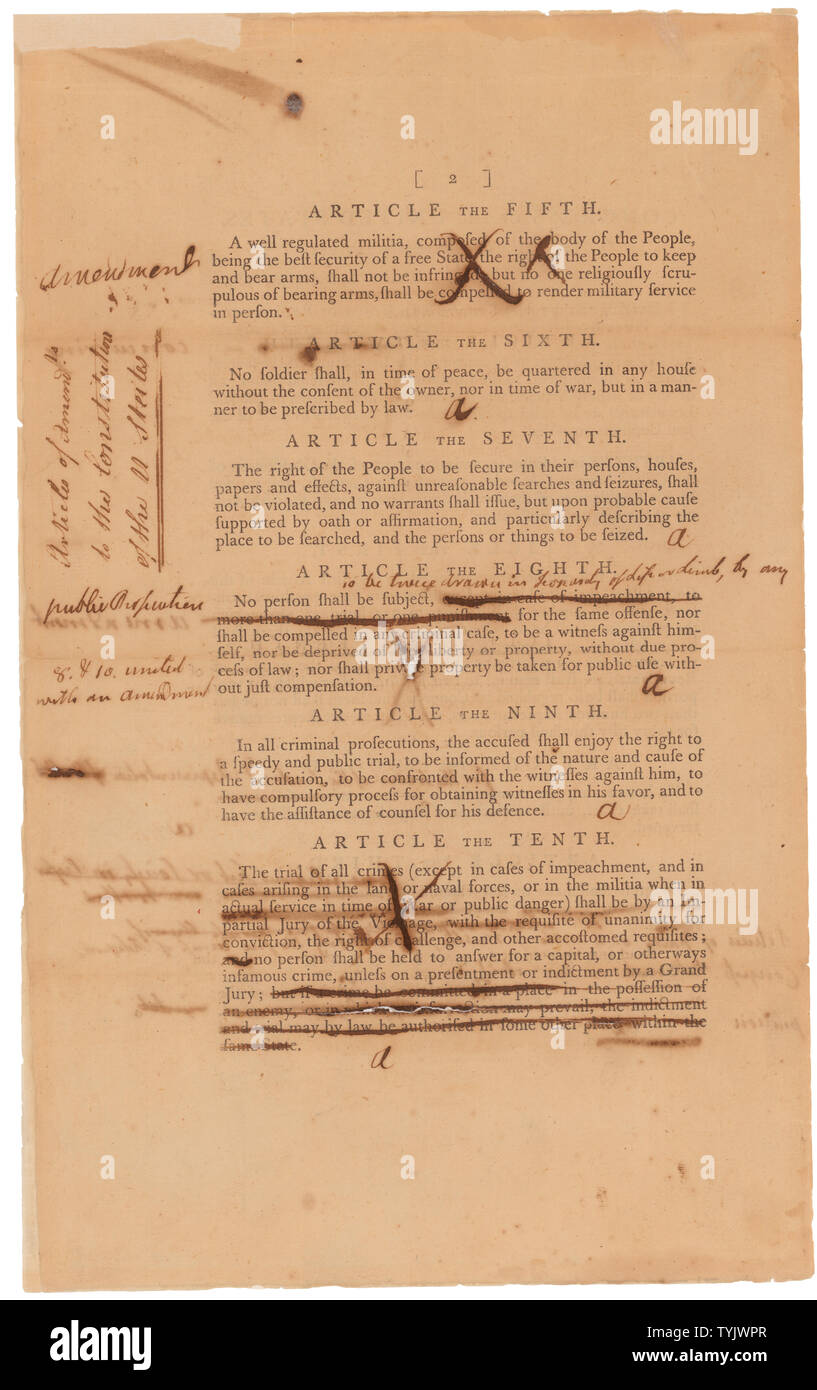 [ 2 ]
ARTICLE THE FIFTH.
A well regulated militia, composed of the body of the People,
being the beſt ſecurity of a free State, the right of the People to keep
and bear arms, ſhall not be infringed, but no one religiouſly ſcru-
pulous of bearing arms, ſhall be compelled to render military ſervice
in perſon.
amendment
ARTICLE THE SIXTH.
No ſoldier ſhall, in time of peace, be quartered in any houſe
without the conſent of the owner, nor in time of war, but in a man-
ner to be preſcribed by law. a
Articles of Amendts
to the Constitution
of the U States
ARTICLE THE SEVENTH.
The right of the People to be ſecure in their perſons, houſes,
papers and effects, againſt unreaſonable ſearches and ſeizures, ſhall
not be violated, and no warrants ſhall iſſue, but upon probable cauſe
ſupported by oath or affirmation, and particularly deſcribing the
place to be ſearched, and the perſons or things to be ſeized. a
ARTICLE THE EIGHTH.
to be twice drawn in Jeopardy of Life or Limb, by any
public Prosecution
No perſon ſhall be ſubject, except in caſe of impeachment, to
more than one trial, or one puniſhment for the ſame offenſe, nor
ſhall be compelled in any criminal caſe, to be a witneſs againſt him-
ſelf, nor be deprived of liberty or property, without due pro-
ceſs of law; nor ſhall private property be taken for public uſe with-
out juſt compenſation. a
8. & 10. united
with an amendment
ARTICLE THE NINTH.
In all criminal proſecutions, the accuſed ſhall enjoy the right to
a ſpeedy and public trial, to be informed of the nature and cauſe of
the accuſation, to be confronted with the witneſſes againſt him, to
have compulſory proceſs for obtaining witneſſes in his favor, and to
have the aſſiſtance of counſel for his defence. a
ARTICLE THE TENTH.
The trial of all crimes (except in caſes of impeachment, and in
caſes ariſing in the land or naval forces, or in the militia when in
actual ſervice in time of War or public danger) ſhall be by an im-
partial Jury of the Vicinage, with the requiſite of unanimity for
conviction, the right of challenge, and other accoſtomed requiſites;
and no perſon ſhall be held to anſwer for a capital, or otherways
infamous crime, unleſs on a preſentment or indictment by a Grand
Jury; but if a crime be committed in a place in the poſſeſſion of
an enemy, or in which may prevail, the indictment
and trial may by law be authoriſed in ſome other place within the
ſame State.
a
alamy
a alamy
Image ID: TYJWPR
www.alamy.com